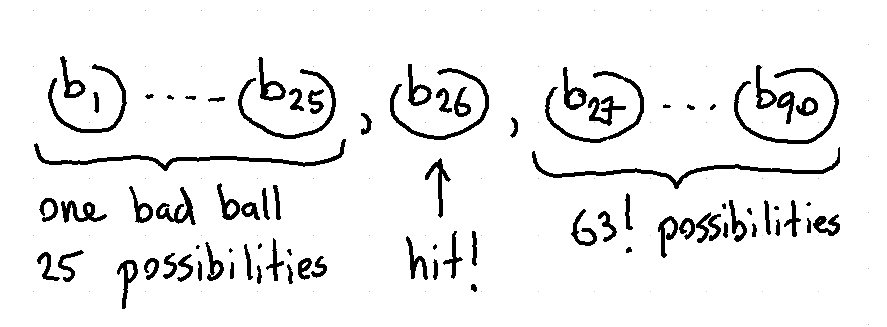 b1 ----- b25 , b26 , b27 ... b90
one bad ball
25 possibilities
hit!
63! possibilities